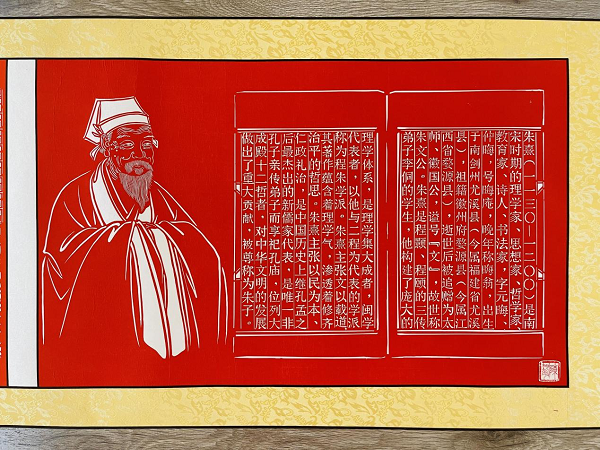 朱熹（一一三〇-一二〇〇）是南
宋时期的理学家、思想家、哲学家、
教育家、诗人、书法家，字元晦、
仲晦，号晦庵，晚年称晦翁，出生
于南剑州尤溪县（今属福建省尤溪
县），祖籍徽州府婺源县（今属江
西省婺源县）逝世后被追赠为太
师、徽国公，谥号『文』，故世称
朱文公。朱熹是程颢、程颐的三传
弟子李侗的学生，他构建了庞大的
理学体系，是理学集大成者，闽学
代表者，以他与二程为代表的学派
称为程朱学派。朱熹主张文以载道，
其著作蕴含着理学气，渗透着修齐
治平的哲思。朱熹主张以民为本、
仁政礼治，是中国历史上继孔孟之
后最杰出的新儒家代表，是唯一非
孔子亲传弟子而享祀孔庙，位列大
成殿十二哲者，对中华文明的发展
做出了重大贡献，被尊称为朱子。